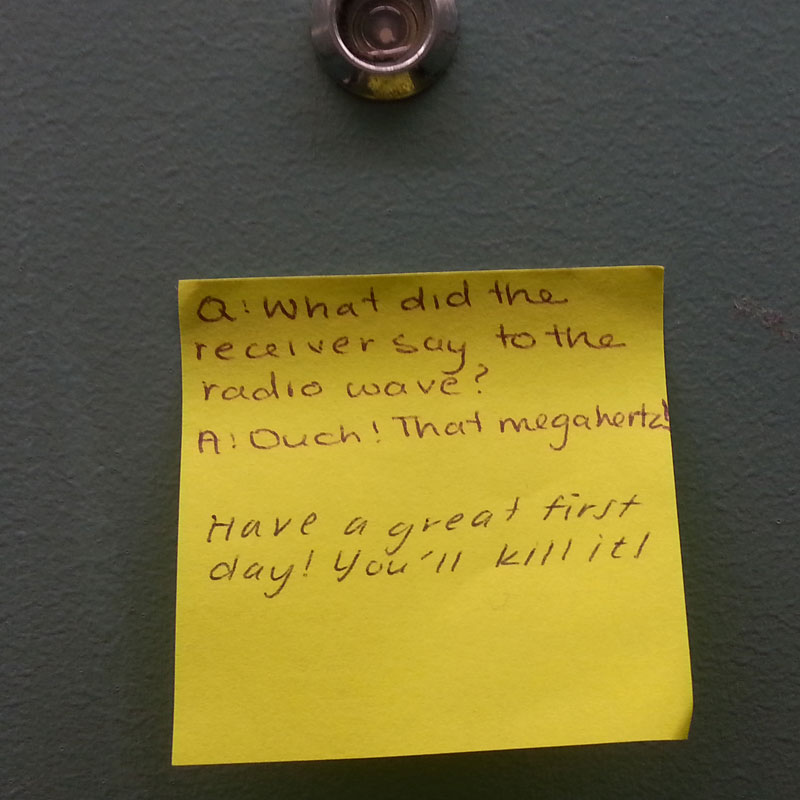 Q: What did the
receiver say to the
radio wave?
A: Ouch! That megahertz!
Have a great first
day! You'll kill it!